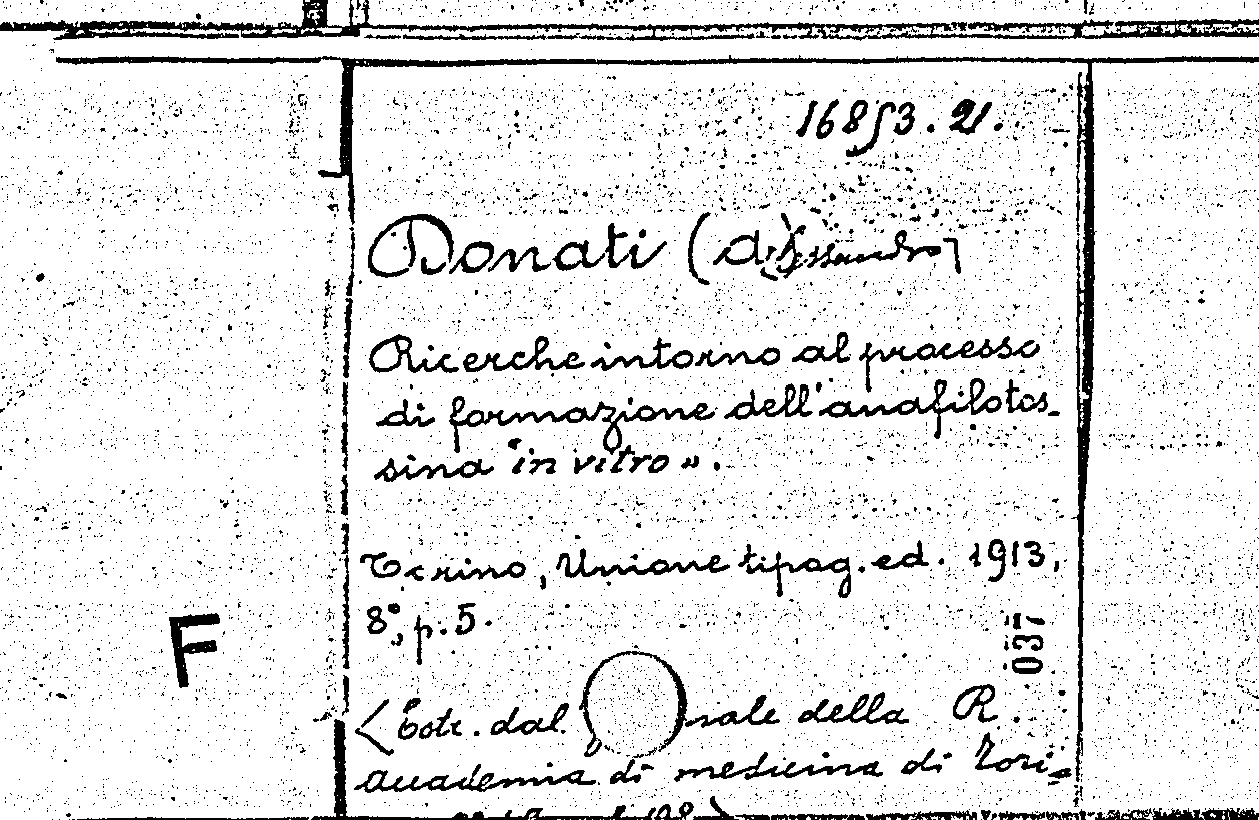 16853.21.
Donati (Alessandro)
Ricerche intorno al processo
di formazione dell'anafilotos-
sina "in vitro".
Torino, Unione tipog. ed. 1913,
8°, p. 5.
037
F
(Estr. dal nale della R.
Accademia di medicina di Tori-